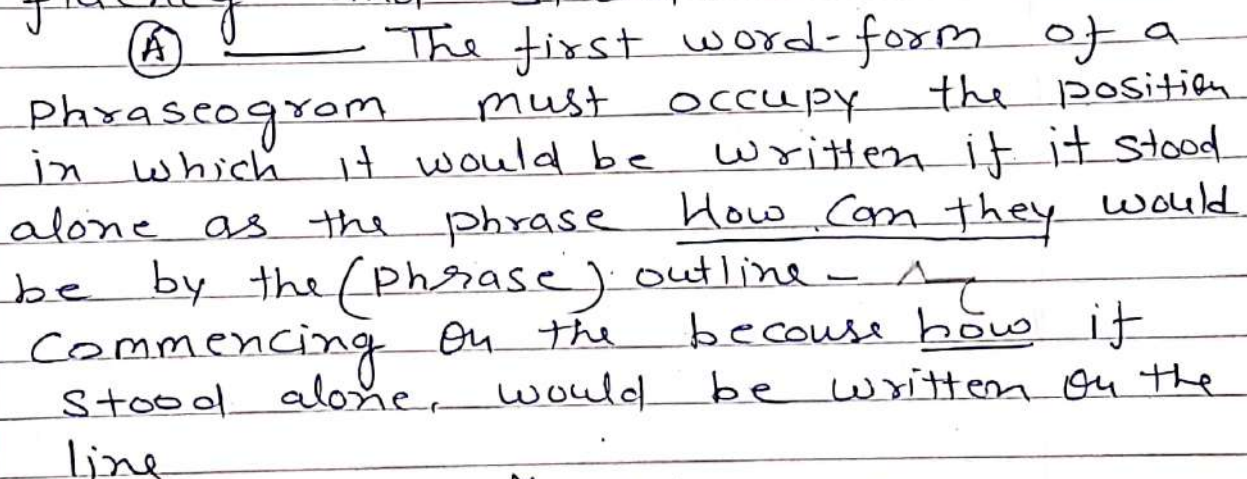 Ⓐ ——— The first word-form of a
Phraseogram must occupy the position
in which it would be written if it stood
alone as the phrase How Can they would
be by the (Phrase) outline -
Commencing on the becouse how if
stood alone, would be written on the
line